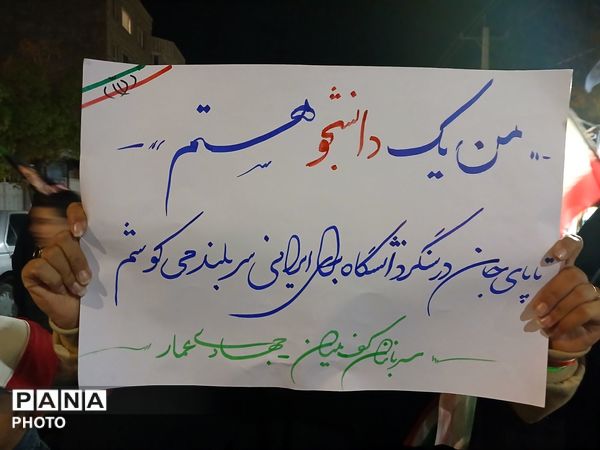 من یک دانشجو هستم
تا پای جان در سنگر دانشگاه برای ایرانی سربلند می کوشم
سربازان کف میدان - جهادی عمار
PANA
PHOTO